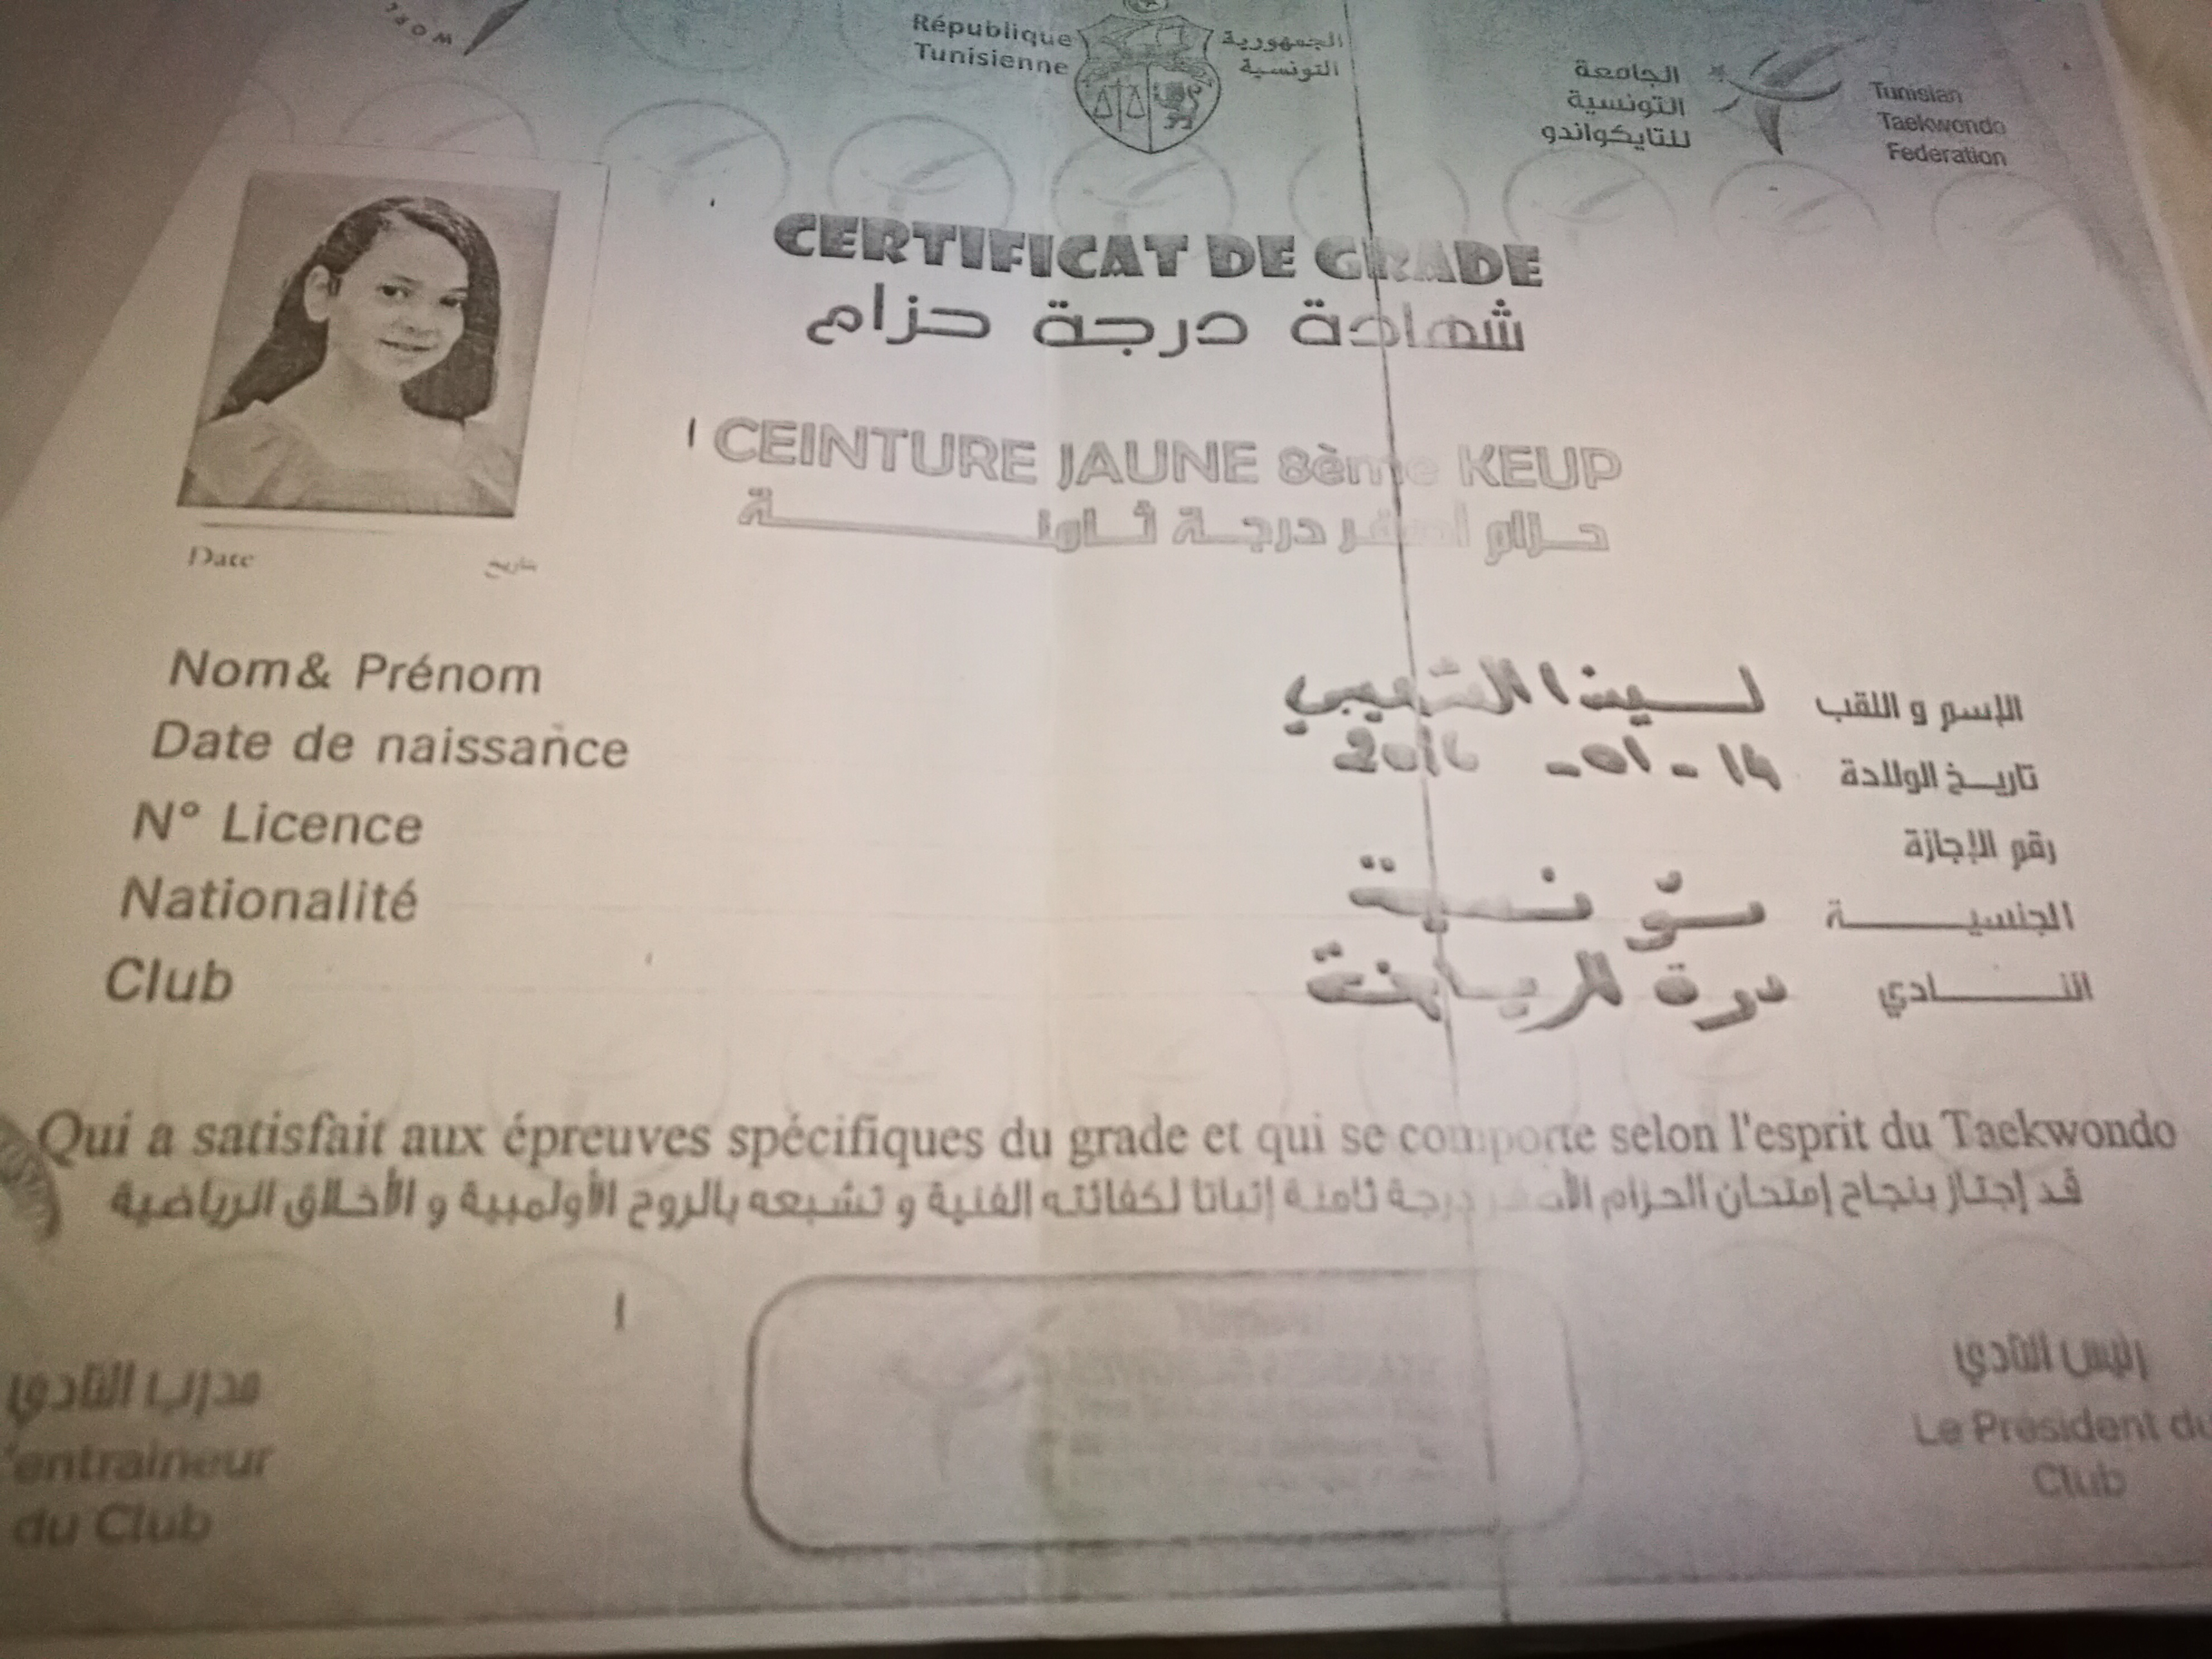 WORL
République
Tunisienne
الجمهورية
التونسية
الجامعة
التونسية
للتايكواندو
Tunisian
Taekwondo
Federation
CERTIFICAT DE GRADE
شهادة درجة حزام
CEINTURE JAUNE 8ème KEUP
حـزام أصفـر درجـة ثـامنـــــــة
Date تاريخ
Nom& Prénom لـــينا الشعيبي الإسم و اللقب
Date de naissance 14 - 01 - 2016 تاريـخ الولادة
N° Licence رقم الإجازة
Nationalité تونسية الجنسيـــــــة
Club درة للرياضة النـــــــادي
Qui a satisfait aux épreuves spécifiques du grade et qui se comporte selon l'esprit du Taekwondo
قد إجتاز بنجاح إمتحان الحزام الأصفر درجة ثامنة إثباتا لكفائته الفنية و تشبعه بالروح الأولمبية و الأخلاق الرياضية
مدرب النادي
'entraineur
du Club
رئيس النادي
Le Président du
Club